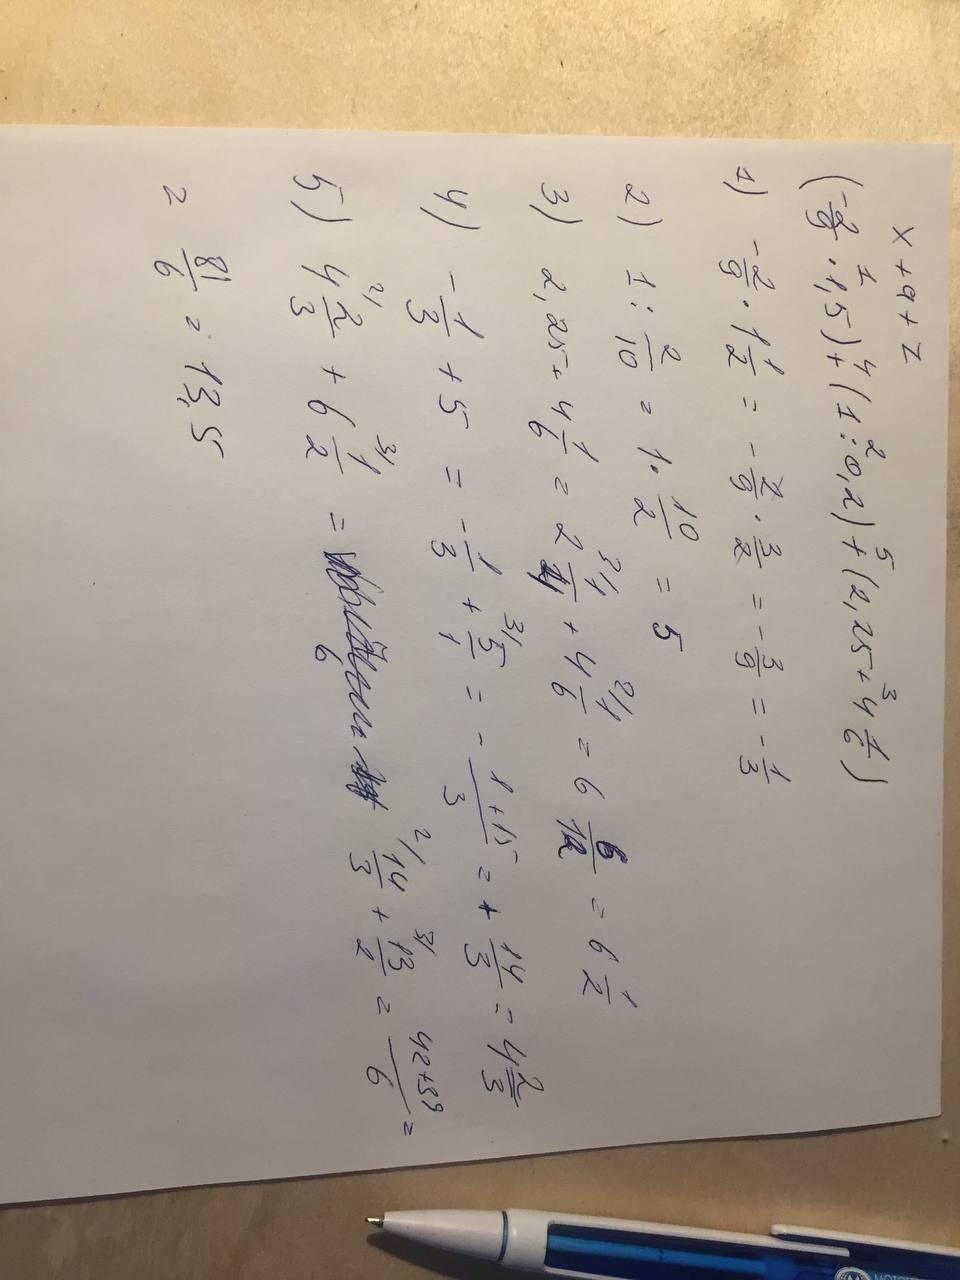 x + a + z
(-2/9 · 1,5) + (1 : 0,2) + (2,25 + 4 1/6)
1 4 2 5 3
1) -2/9 · 1 1/2 = - 2/9 · 3/2 = - 3/9 = - 1/3
2) 1 : 2/10 = 1 · 10/2 = 5
3) 2,25 + 4 1/6 = 2 1/4 3/ + 4 1/6 2/ = 6 6/12 = 6 1/2
4) - 1/3 + 5 = - 1/3 + 5/1 3/ = - 1+15/3 = + 14/3 = 4 2/3
5) 4 2/3 2/ + 6 1/2 3/ = 6 14/3 2/ + 13/2 3/ = 42+39/6 =
= 81/6 = 13,5